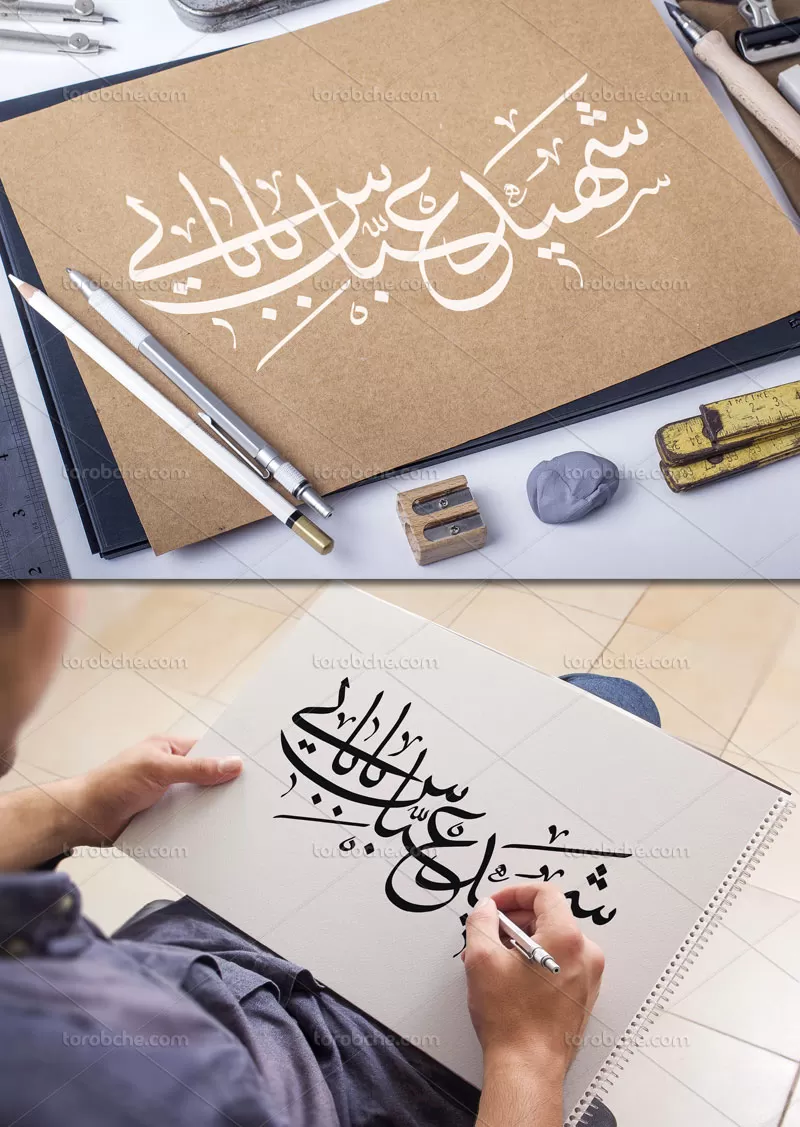 torobche.com torobche.com torobche.com
شهید عباس بابایی
torobche.com torobche.com torobche.com
torobche.com torobche.com torobche.com
3
2
torobche.com torobche.com torobche.com
شهید عباس بابایی
torobche.com torobche.com torobche.com
torobche.com torobche.com torobche.com